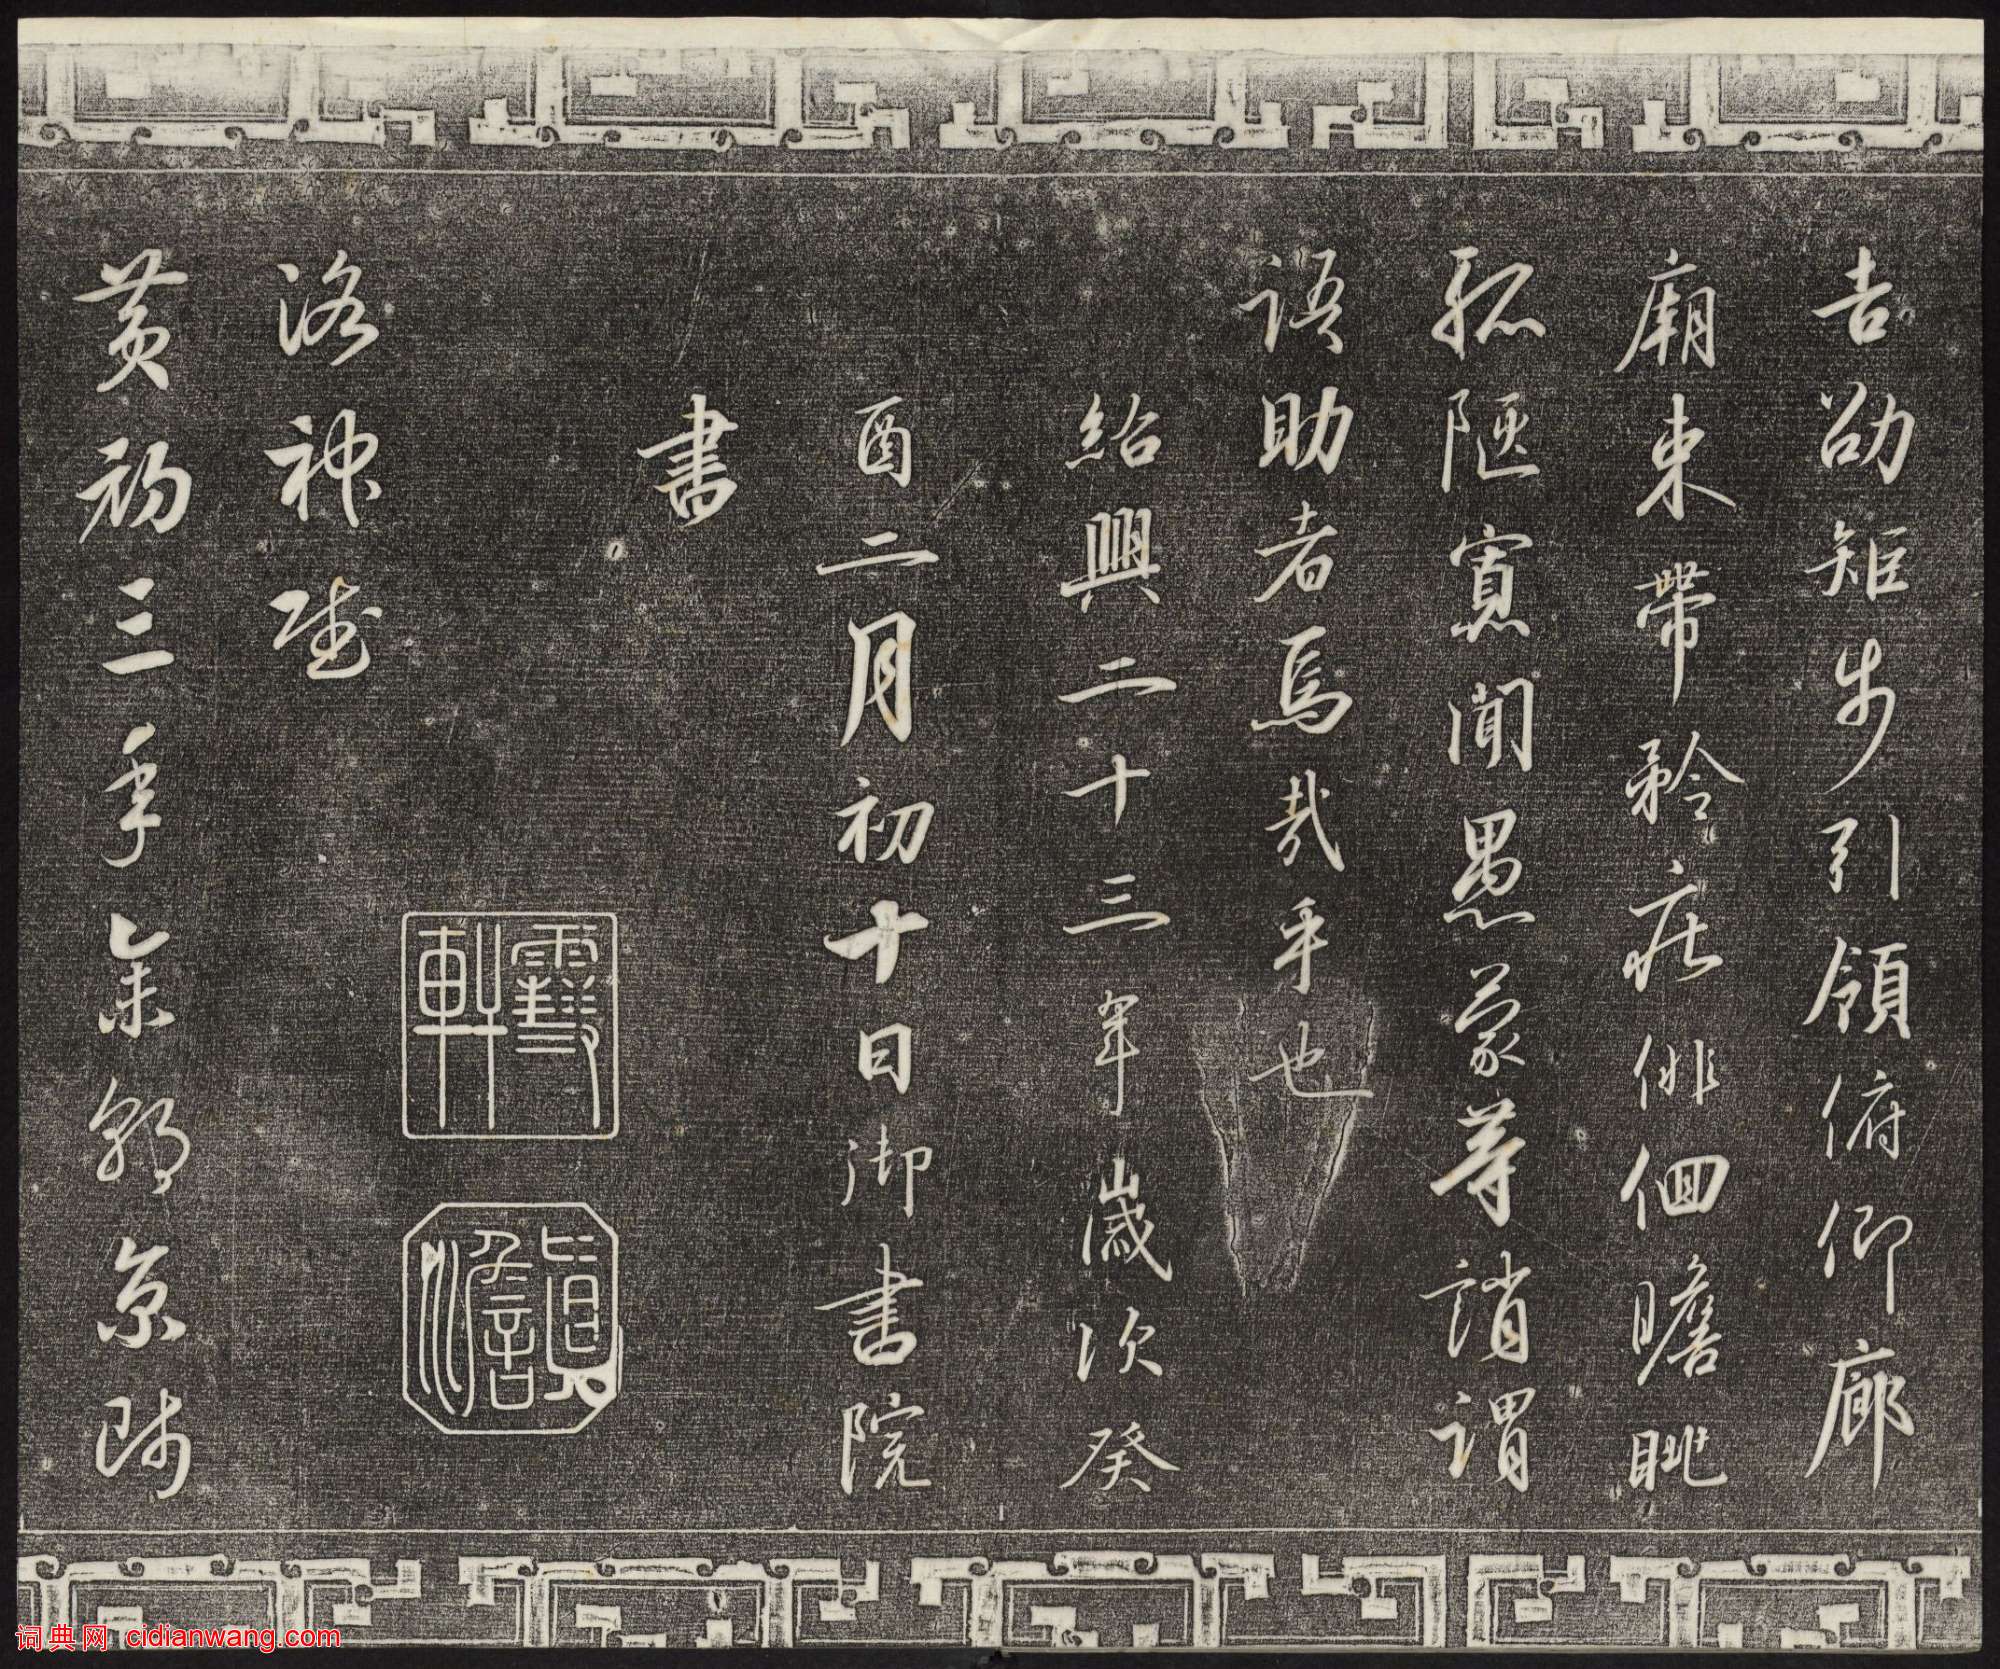 吉劭矩步引領俯仰廊
廟束帶矜莊俳佪瞻眺
孤陋寡聞愚蒙等誚謂
語助者焉哉乎也
紹興二十三年歲次癸
酉二月初十日御書院
書
洛神賦
黃初三年余朝京師
雪軒
詞典网 cidianwang.com